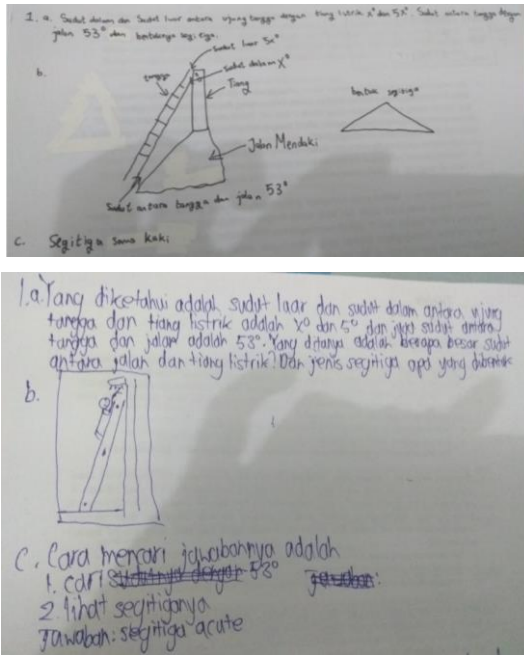 1. a. Sudut dalam dan Sudut luar antara ujung tangga dengan tiang listrik x° dan 5x°. Sudut antara tangga dengan
jalan 53° dan bentuknya segitiga.
b.
Sudut luar 5x°
Sudut dalam X°
tangga
Tiang
bentuk segitiga
Jalan Mendaki
Sudut antara tangga dan jalan 53°
c. Segitiga sama kaki
1.a. Yang diketahui adalah sudut luar dan sudut dalam antara ujung
tangga dan tiang listrik adalah x° dan 5° dan juga sudut antara
tangga dan jalan adalah 53°. Yang ditanya adalah berapa besar sudut
antara jalan dan tiang listrik? Dan jenis segitiga apa yang dibentuk
b.
C. Cara mencari jawabannya adalah
1. cari 53°
2. lihat segitiganya
Jawaban: segitiga acute